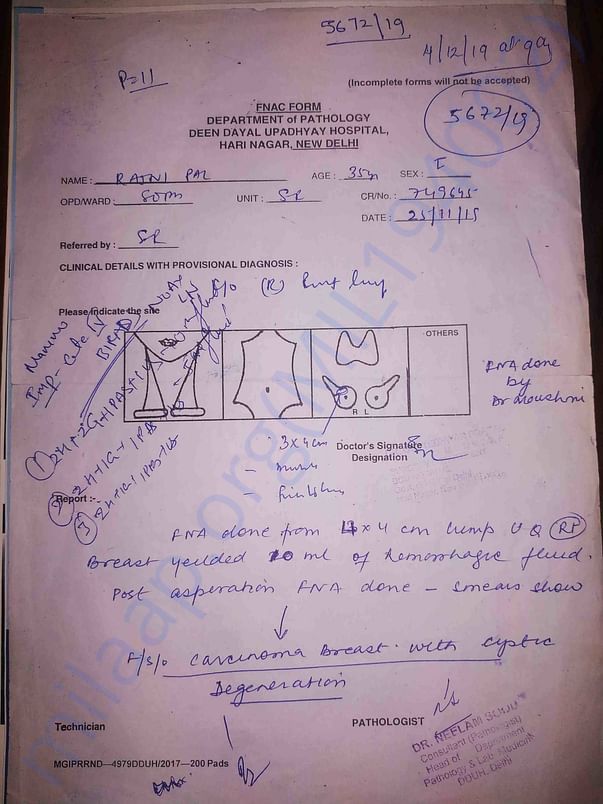 5672/19
4/12/19 at 9
P=11
(Incomplete forms will not be accepted)
5672/19
FNAC FORM
DEPARTMENT of PATHOLOGY
DEEN DAYAL UPADHYAY HOSPITAL,
HARI NAGAR, NEW DELHI
NAME : RAJNI PAL AGE : 35yr SEX : F
OPD/WARD : SOPD UNIT : SR CR/No. : 749645
DATE : 25/11/19
Referred by : SR
CLINICAL DETAILS WITH PROVISIONAL DIAGNOSIS :
(R) Breast lump
Please indicate the site
Mammo
Imp - Cate IV
BIRADS
OTHERS
R L
FNA done
by
Dr Moushmi
3x4cm
Doctor's Signature
Designation
Report :-
FNA done from 4x4 cm lump UQ Rt
Breast yeilded 10 ml of hemorrhagic fluid.
Post asperation FNA done - smears show
F/S/O Carcinoma Breast with cystic
Degeneration
Technician
PATHOLOGIST
DR. NEELAM SOOD
Consultant (Pathologist)
Head of Department
Pathology & Lab. Medicine
DDUH, Delhi
MGIPRRND—4979DDUH/2017—200 Pads
milaap.org